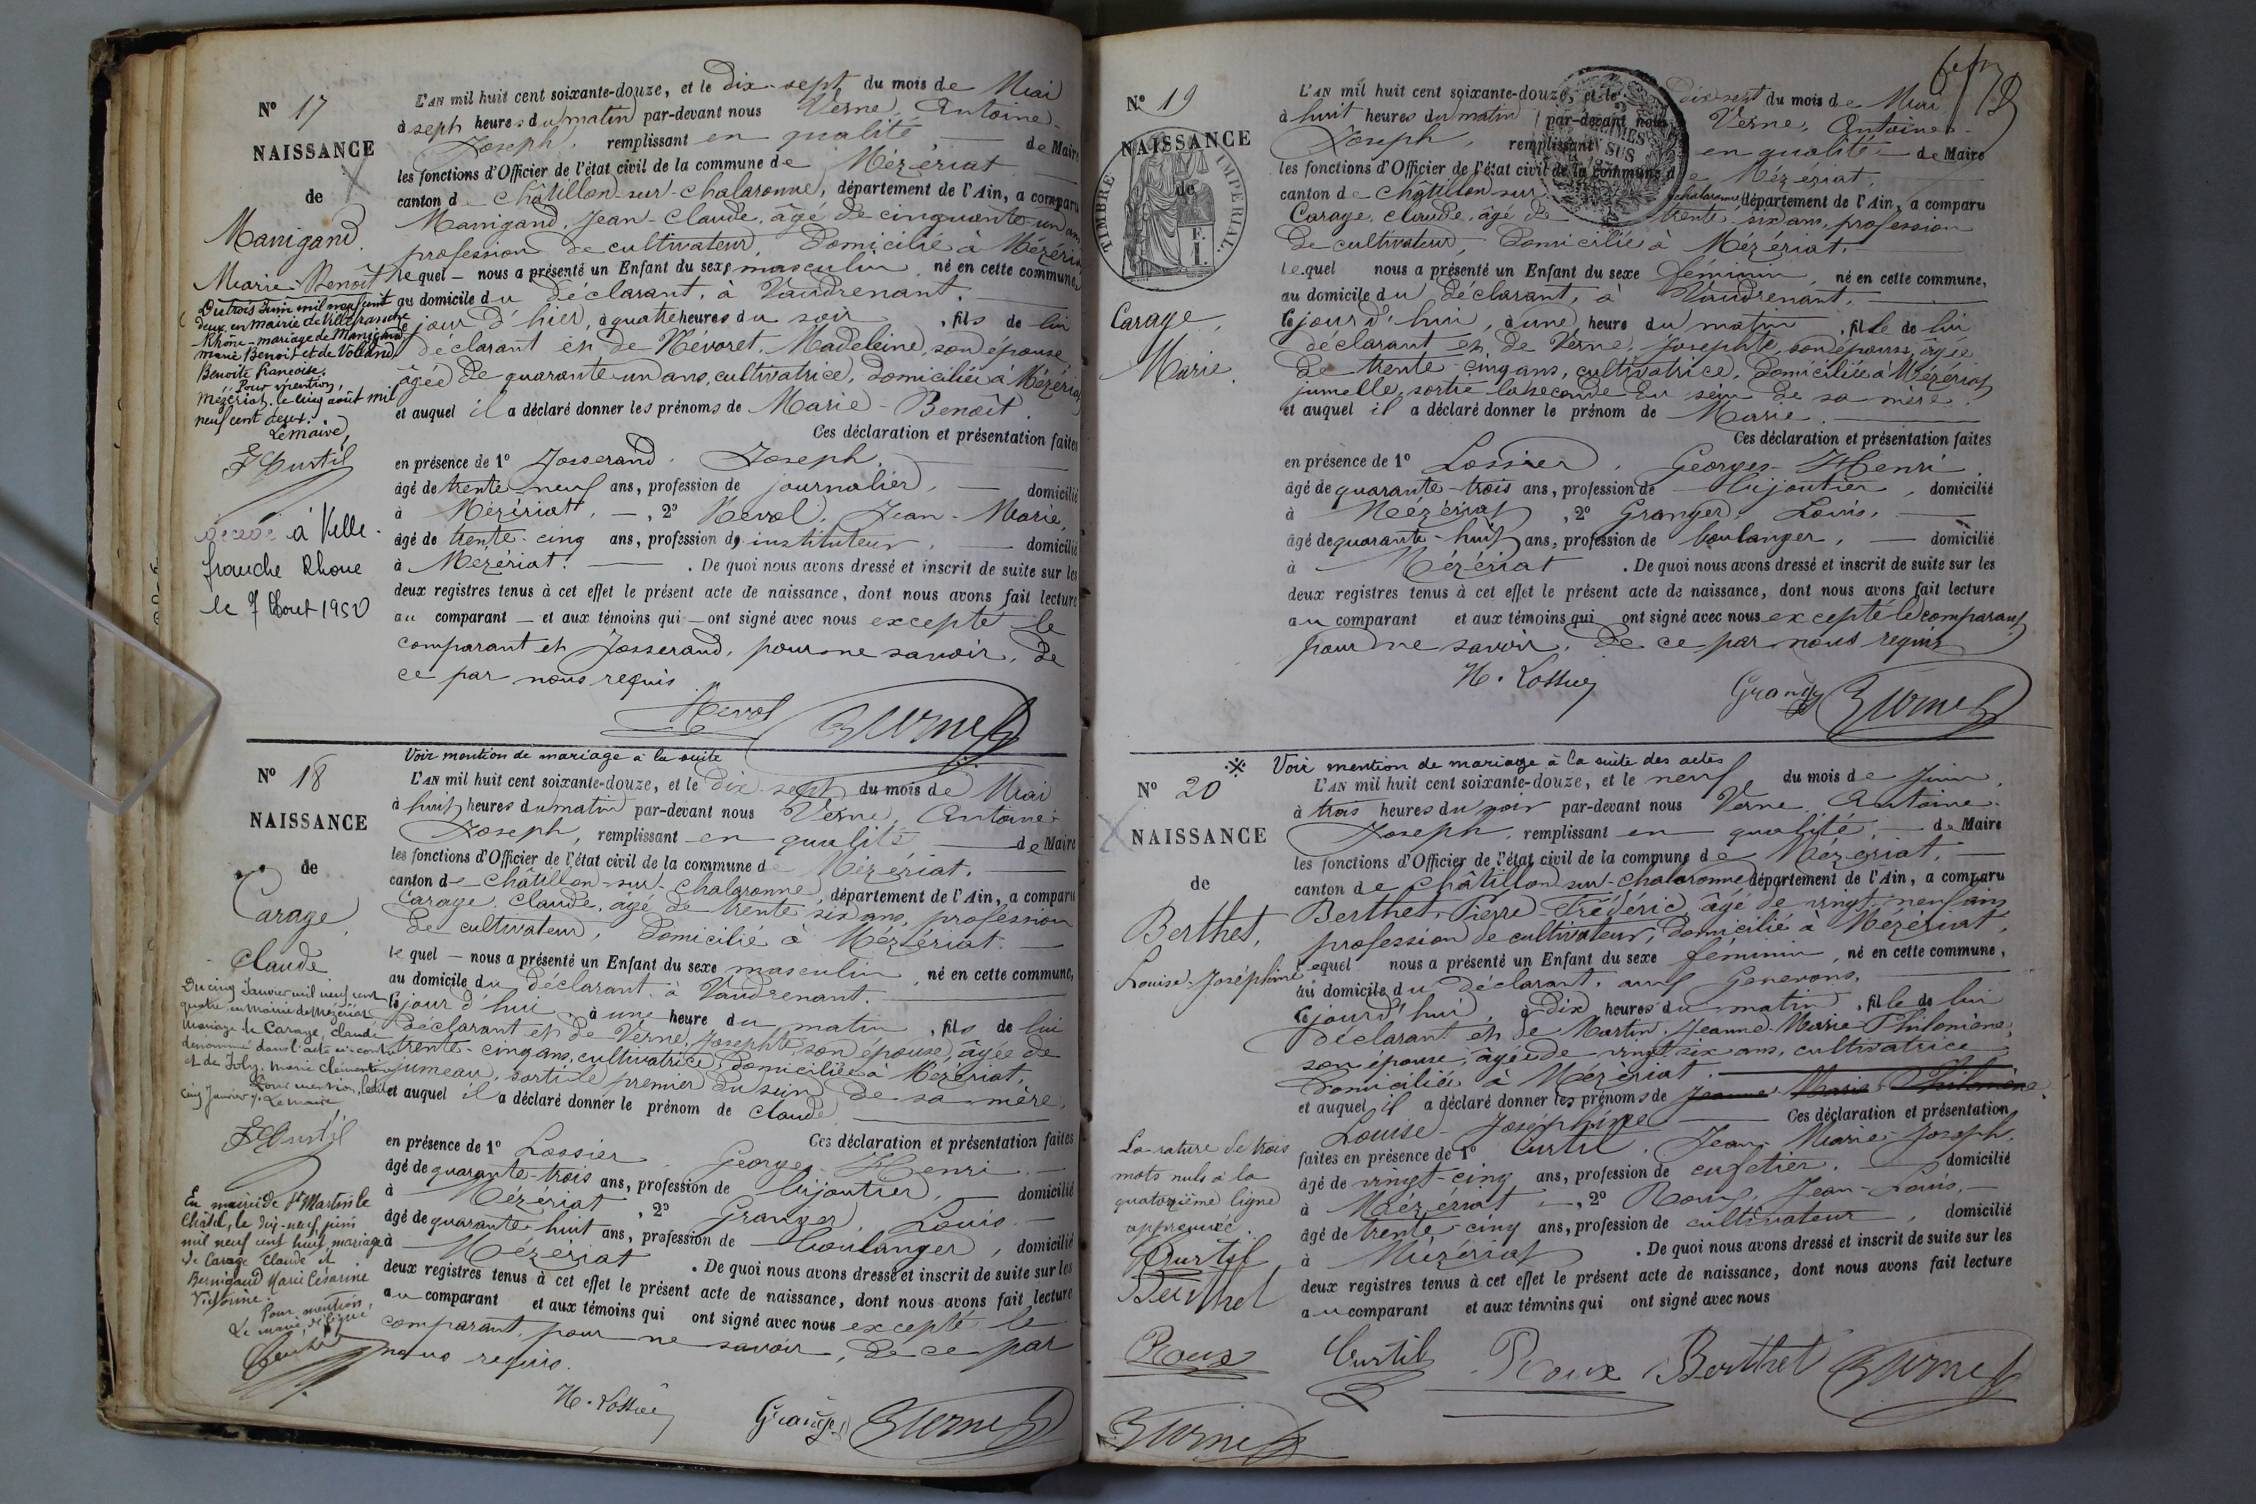 N° 17
NAISSANCE
de
Manigand
Marie-Benoît
Du trois Juin mil neuf cent
deux, en mairie de Villefranche
Rhône - mariage de Manigand
Marie Benoit et de Volland
Benoite françoise.
Pour mention,
Mézériat, le cinq août mil
neuf cent deux.
Le maire,
Curtil
décédé à Ville-
franche Rhone
le 7 Aout 1950
L'AN mil huit cent soixante-douze, et le dix-sept du mois de Mai
à sept heures du matin par-devant nous Verne, Antoine-
Joseph, remplissant en qualité de Maire
les fonctions d'Officier de l'état civil de la commune de Mézériat
canton de Châtillon-sur-Chalaronne, département de l'Ain, a comparu
Manigand, Jean-Claude, âgé de cinquante-un ans
profession de cultivateur, domicilié à Mézériat
lequel — nous a présenté un Enfant du sexe masculin, né en cette commune,
au domicile du déclarant, à Vaudrenant.
le jour d'hier, à quatre heures du soir, fils de lui
déclarant et de Névoret, Madeleine, son épouse,
âgée de quarante un ans, cultivatrice, domiciliée à Mézériat
et auquel il a déclaré donner les prénoms de Marie-Benoît.
Ces déclaration et présentation faites
en présence de 1° Josserand, Joseph,
âgé de trente-neuf ans, profession de journalier, — domicilié
à Mézériat, —, 2° Revol, Jean-Marie,
âgé de trente-cinq ans, profession d'instituteur, — domicilié
à Mézériat. — . De quoi nous avons dressé et inscrit de suite sur les
deux registres tenus à cet effet le présent acte de naissance, dont nous avons fait lecture
au comparant — et aux témoins qui — ont signé avec nous excepté le
comparant et Josserand, pour ne savoir, de
ce par nous requis
Revol Verne
N° 18
NAISSANCE
de
Carage,
Claude
Du cinq Janvier mil neuf cent
quatre, en Mairie de Mézériat
Mariage de Carage, Claude
dénommé dans l'acte ci-contre
et de Joly, Marie Clémentine
Pour mention, ledit
cinq Janvier, Le Maire
Curtil
En mairie de St Martin le
Châtel, le dix-neuf juin
mil neuf cent huit mariage
de Carage Claude et
Bernigaud Marie Césarine
Victorine.
Pour mention,
Le maire,
Voir mention de mariage à la suite
L'AN mil huit cent soixante-douze, et le dix-sept du mois de Mai
à huit heures du matin par-devant nous Verne, Antoine-
Joseph, remplissant en qualité — de Maire
les fonctions d'Officier de l'état civil de la commune de Mézériat.
canton de Châtillon-sur-Chalaronne, département de l'Ain, a comparu
Carage, Claude, âgé de trente-six ans, profession
de cultivateur, domicilié à Mézériat. —
lequel — nous a présenté un Enfant du sexe masculin, né en cette commune,
au domicile du déclarant, à Vaudrenant.
le jour d'hui, à une heure du matin, fils de lui
déclarant et de Verne, Josephte, son épouse, âgée de
trente-cinq ans, cultivatrice, domiciliée à Mézériat,
jumeau, sorti le premier du sein de sa mère,
et auquel il a déclaré donner le prénom de Claude
Ces déclaration et présentation faites
en présence de 1° Lossier, Georges-Henri. —
âgé de quarante-trois ans, profession de bijoutier, — domicilié
à Mézériat, 2° Granger, Louis. —
âgé de quarante-huit ans, profession de boulanger, domicilié
à Mézériat. De quoi nous avons dressé et inscrit de suite sur les
deux registres tenus à cet effet le présent acte de naissance, dont nous avons fait lecture
au comparant et aux témoins qui ont signé avec nous excepté le
comparant, pour ne savoir, de ce par
nous requis.
H. Lossier Granger Verne
N° 19
NAISSANCE
de
TIMBRE IMPÉRIAL
Carage,
Marie.
L'AN mil huit cent soixante-douze, et le dix-sept du mois de Mai
à huit heures du matin par-devant nous Verne, Antoine-
Joseph, remplissant en qualité — de Maire
les fonctions d'Officier de l'état civil de la commune de Mézériat,
canton de Châtillon sur Chalaronne, département de l'Ain, a comparu
Carage, Claude, âgé de trente-six ans, profession
de cultivateur, domicilié à Mézériat.
lequel nous a présenté un Enfant du sexe féminin, né en cette commune,
au domicile du déclarant, à Vaudrenant. —
le jour d'hui, à une heure du matin, fille de lui
déclarant et de Verne, Josephte, son épouse, âgée
de trente-cinq ans, cultivatrice, domiciliée à Mézériat
jumelle, sortie la seconde du sein de sa mère.
et auquel il a déclaré donner le prénom de Marie.
Ces déclaration et présentation faites
en présence de 1° Lossier, Georges-Henri,
âgé de quarante-trois ans, profession de bijoutier, domicilié
à Mézériat, 2° Granger, Louis, —
âgé de quarante-huit ans, profession de boulanger, — domicilié
à Mézériat. De quoi nous avons dressé et inscrit de suite sur les
deux registres tenus à cet effet le présent acte de naissance, dont nous avons fait lecture
au comparant et aux témoins qui ont signé avec nous excepté le comparant
pour ne savoir, de ce par nous requis
H. Lossier Granger Verne
N° 20
NAISSANCE
de
Berthet,
Louise-Joséphine
La rature de trois
mots nuls à la
quatorzième ligne
approuvée
Curtil
Berthet
Roux
Verne
※ Voir mention de mariage à la suite des actes
L'AN mil huit cent soixante-douze, et le neuf du mois de Juin,
à trois heures du soir par-devant nous Verne, Antoine-
Joseph, remplissant en qualité, — de Maire
les fonctions d'Officier de l'état civil de la commune de Mézériat, —
canton de Châtillon-sur-Chalaronne département de l'Ain, a comparu
Berthet, Pierre-Frédéric, âgé de vingt-neuf ans
profession de cultivateur, domicilié à Mézériat,
lequel nous a présenté un Enfant du sexe féminin, né en cette commune,
au domicile du déclarant, aux Generons,
le jour d'hui, à dix heures du matin, fille de lui
déclarant et de Martin, Jeanne-Marie-Philomène,
son épouse, âgée de vingt six ans, cultivatrice
domiciliée à Mézériat.
et auquel il a déclaré donner les prénoms de Jeanne-Marie-Philomène
Louise-Joséphine — Ces déclaration et présentation
faites en présence de 1° Curtil, Jean-Marie-Joseph,
âgé de vingt-cinq ans, profession de cafetier. — domicilié
à Mézériat —, 2° Roux, Jean-Louis, —
âgé de trente-cinq ans, profession de cultivateur —, domicilié
à Mézériat. De quoi nous avons dressé et inscrit de suite sur les
deux registres tenus à cet effet le présent acte de naissance, dont nous avons fait lecture
au comparant et aux témoins qui ont signé avec nous
Curtil Roux Berthet Verne